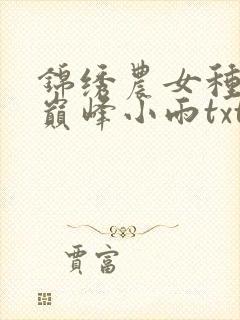 錦绣農女種
巔峰小雨txt
賈富